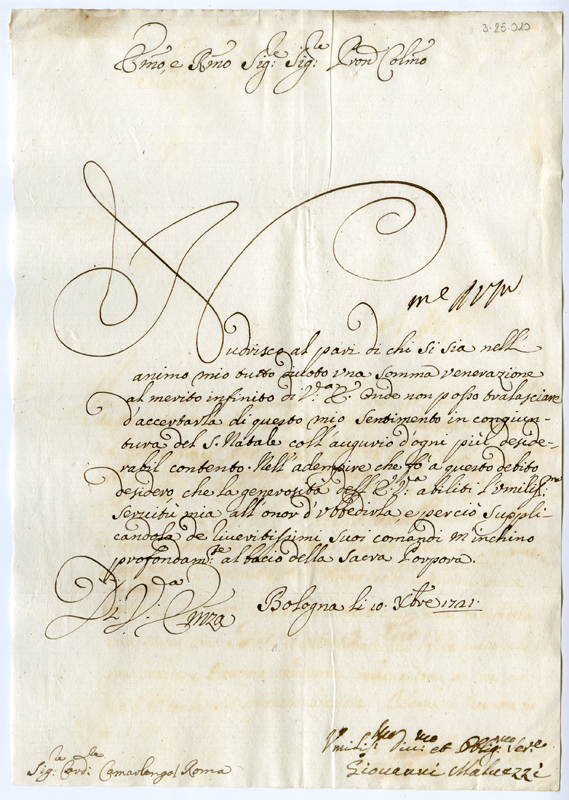 3-25-010
Emo, e Rmo Sig:re Sig:re Pron Colmo
Nudrisco al pari di chi si sia nell'
animo mio tutto divoto una somma venerazione
al merito infinito di V:ra E. Onde non posso tralasciare
d'accertarla di questo mio sentimento in congiun-
tura del S. Natale coll'augurio d'ogni più deside-
rabil contento. Nell'adempire che fò a questo debito
desidero, che la generosità dell'E. V:ra abiliti l'umiliss:ma
servitù mia all'onor d'ubbidirla, e perciò suppli-
candola de riveritissimi suoi comandi m'inchino
profondam:te al bacio della Sacra Porpora.
Di V:ra Emza
Bologna li 10. Xbre 1721.
Umiliss:mo Divo: et Obblig:mo Ser:e
Giovanni Malvezzi
Sig:r Card: Camarlengo / Roma